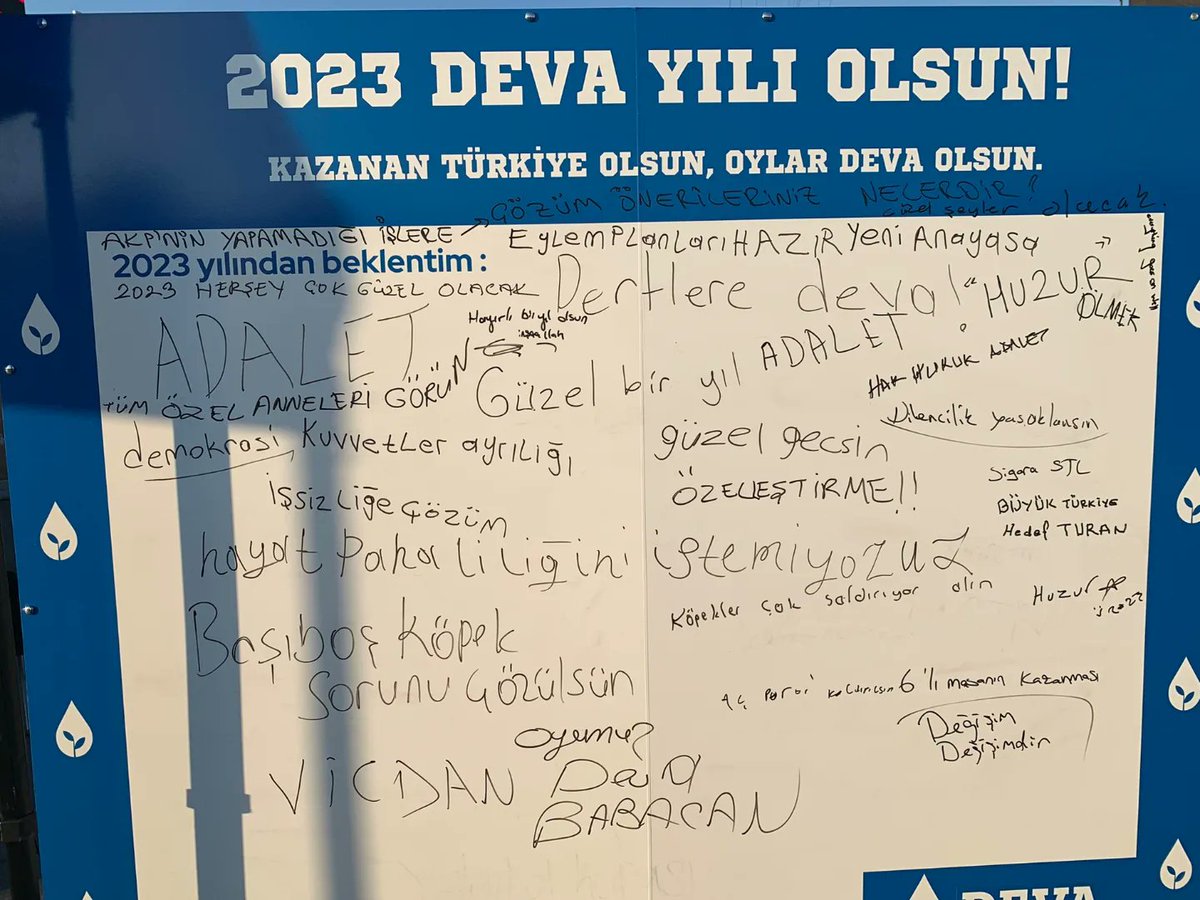 2023 DEVA YILI OLSUN!
KAZANAN TÜRKİYE OLSUN, OYLAR DEVA OLSUN.
AKP'NİN YAPAMADIĞI İŞLERE → ÇÖZÜM ÖNERİLERİNİZ NELERDİR?
güzel şeyler olacak.
Eylem Planları HAZIR Yeni Anayasa
2023 yılından beklentim :
2023 HERŞEY ÇOK GÜZEL OLACAK
Dertlere deva!
"HUZUR
ÖLMEK
Hayırlı bir yıl olsun
inşallah
ADALET
ADALET
HAK HUKUK ADALET
TÜM ÖZEL ANNELERİ GÖRÜN
Güzel bir yıl
Dilencilik yasaklansın
demokrasi, Kuvvetler ayrılığı
güzel geçsin
İşsizliğe Çözüm
ÖZELLEŞTİRME!!
Sigara 5TL
BÜYÜK TÜRKİYE
Hedef TURAN
hayat Pahaliliğini istemiyozuz
Köpekler çok saldırıyor alın
Huzur
Başıboş Köpek
Sorunu Çözülsün
6'lı masanın Kazanması
Değişim
Değişimdir
Oyumuz
VİCDAN Deva
BABACAN
DEVA